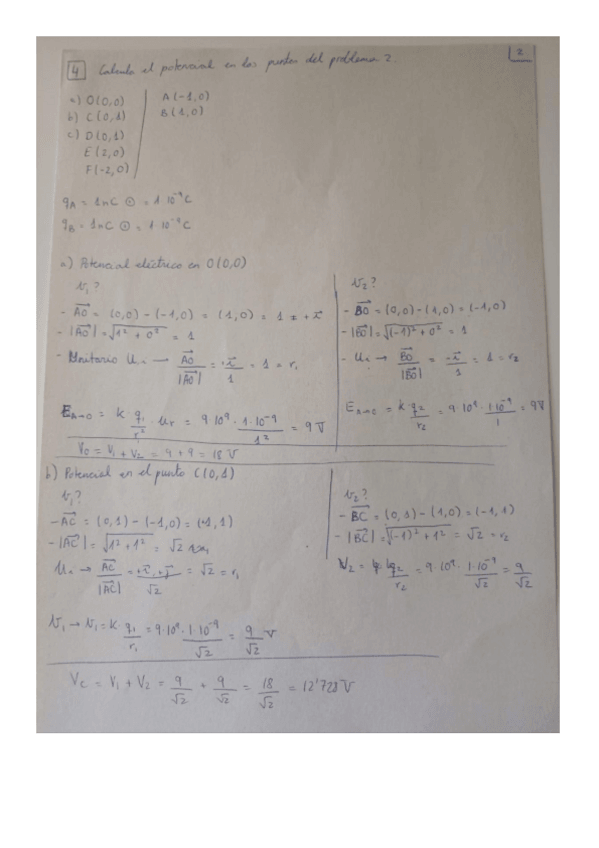 2
4 Calcula el potencial en los puntos del problema 2.
a) O(0,0)
b) C(0,1)
c) D(0,1)
E(2,0)
F(-2,0)
A(-1,0)
B(1,0)
qA = 1nC ⊕ = 1·10⁻⁹C
qB = 1nC ⊕ = 1·10⁻⁹C
a) Potencial eléctrico en O(0,0)
V₁?
- AO = (0,0) - (-1,0) = (1,0) = 1 = +i
- |AO| = √(1² + 0²) = 1
- Unitario Uᵣ → AO/|AO| = i/1 = 1 = r₁
E A→O = k·q₁/r₁² · Ur = 9·10⁹ · 1·10⁻⁹/1² = 9V
V₂?
- BO = (0,0) - (1,0) = (-1,0)
- |BO| = √((-1)² + 0²) = 1
- Uᵣ → BO/|BO| = -i/1 = 1 = r₂
E A→O = k·q₂/r₂ = 9·10⁹ · 1·10⁻⁹/1 = 9V
V₀ = V₁ + V₂ = 9 + 9 = 18 V
b) Potencial en el punto C(0,1)
V₁?
- AC = (0,1) - (-1,0) = (+1,1)
- |AC| = √(1² + 1²) = √2
Uᵣ → AC/|AC| = +i+j/√2 = √2 = r₁
V₁ → V₁ = k·q₁/r₁ = 9·10⁹ · 1·10⁻⁹/√2 = 9/√2 V
V₂?
- BC = (0,1) - (1,0) = (-1,1)
- |BC| = √((-1)² + 1²) = √2 = r₂
V₂ = q₂/r₂ = 9·10⁹ · 1·10⁻⁹/√2 = 9/√2
Vc = V₁ + V₂ = 9/√2 + 9/√2 = 18/√2 = 12'728 V